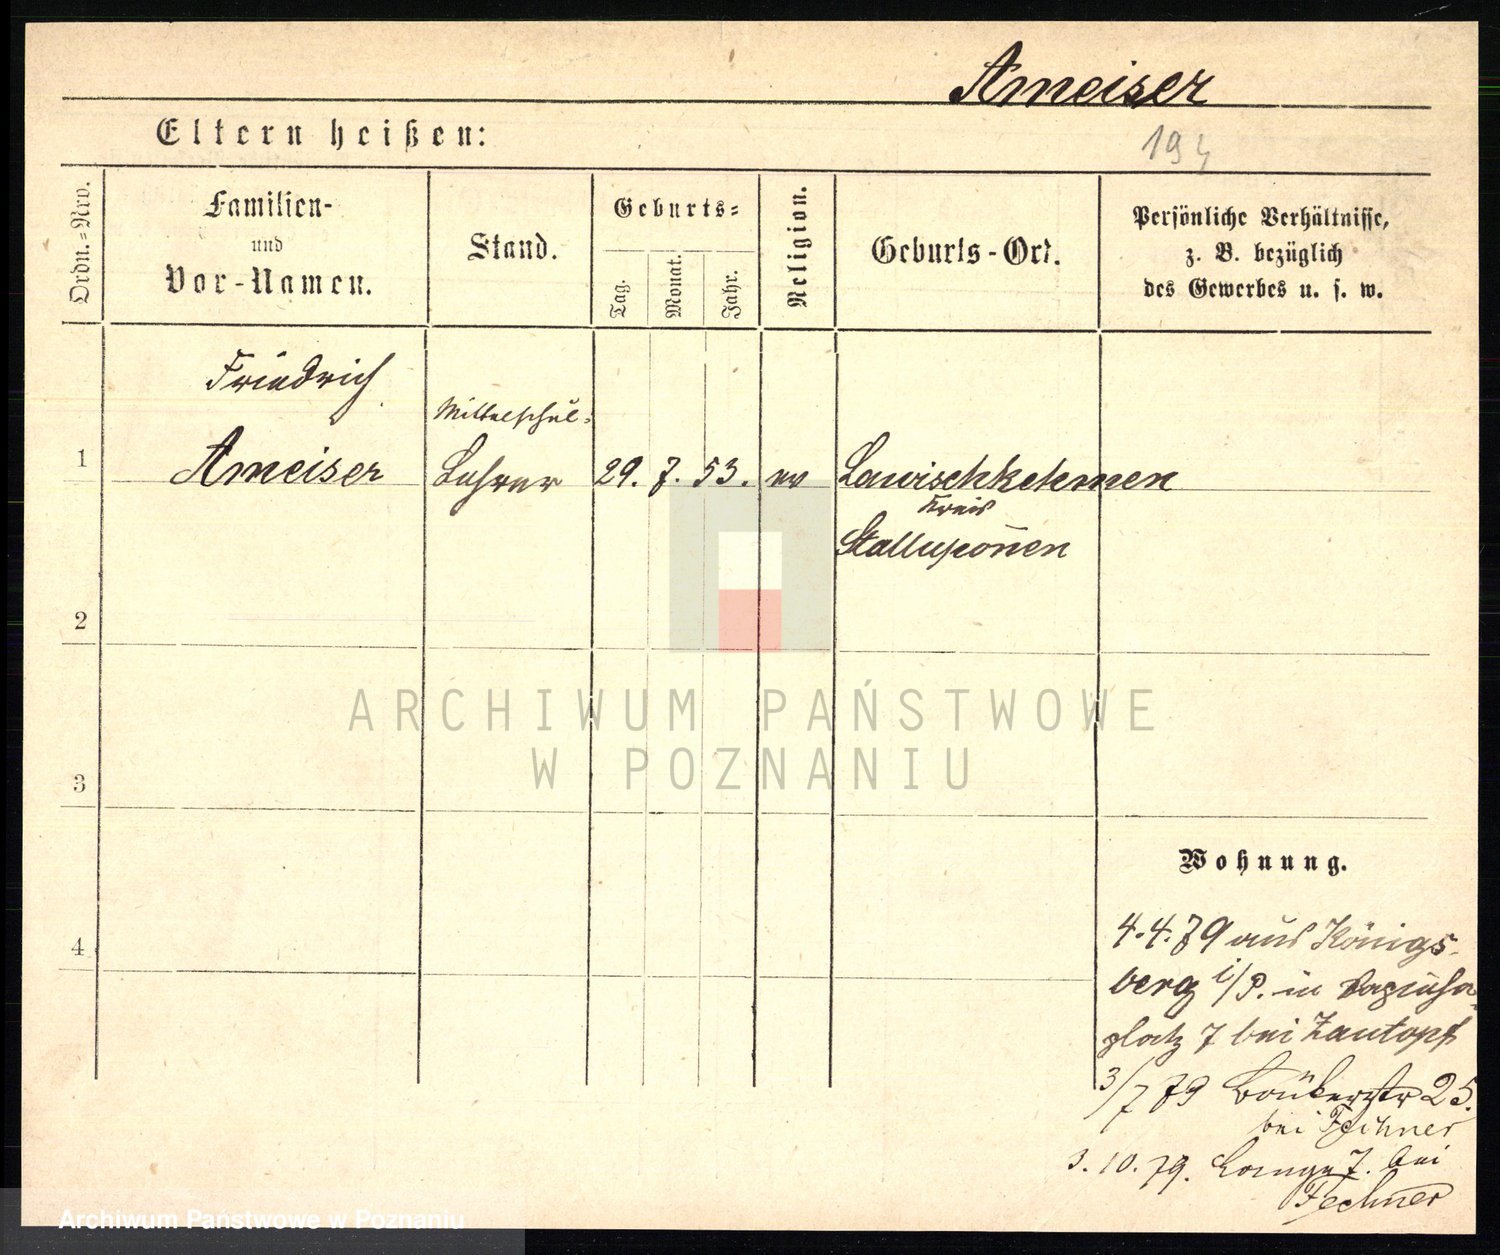 Ameiser
Eltern heißen:
194
Ordn.=Nro.
Familien-
und
Vor-Namen.
Stand.
Geburts=
Tag.
Monat.
Jahr.
Religion.
Geburts-Ort.
Persönliche Verhältnisse,
z. B. bezüglich
des Gewerbes u. s. w.
Friedrich
Mittelschul=
1 Ameiser Lehrer 29. 7. 53. ev Lawischkehmen
Kreis
Stalluponen
2
ARCHIWUM PAŃSTWOWE
W POZNANIU
3
Wohnung.
4
4.4.79 aus Königs-
berg i/P. in Kapieha
platz 7 bei Zautopf
3/7 79 25.
bei Fechner
3. 10. 79. Lange 7. bei
Fechner
Archiwum Państwowe w Poznaniu